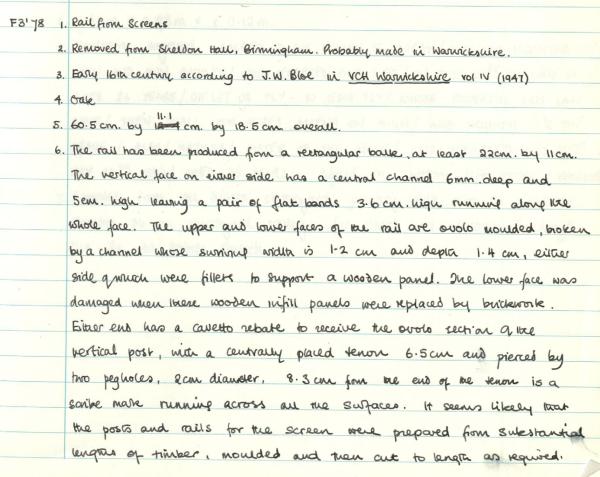 F3'78 1. Rail from Screens
2. Removed from Sheldon Hall, Birmingham. Probably made in Warwickshire.
3. Early 16th century according to J.W. Bloe in VCH Warwickshire vol IV (1947)
4. Oak
5. 60.5cm. by 11.1 cm. by 18.5cm overall.
6. The rail has been produced from a rectangular baulk, at least 22cm. by 11cm.
The vertical face on either side has a central channel 6mm. deep and
5cm. high leaving a pair of flat bands 3.6cm. high running along the
whole face. The upper and lower faces of the rail are ovolo moulded, broken
by a channel whose surviving width is 1.2 cm and depth 1.4 cm, either
side of which were fillets to support a wooden panel. The lower face was
damaged when these wooden infill panels were replaced by brickwork.
Either end has a cavetto rebate to receive the ovolo section of the
vertical post, with a centrally placed tenon 6.5cm and pierced by
two pegholes, 2cm diameter, 8.3cm from the end of the tenon is a
scribe mark running across all the surfaces. It seems likely that
the posts and rails for the screen were prepared from substantial
lengths of timber, moulded and then cut to length as required.